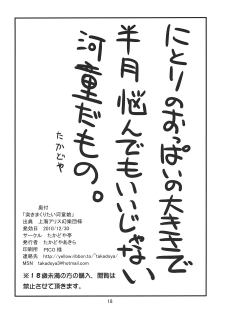 にとりのおっぱいの大きさで
半月悩んでもいいじゃない
河童だもの。
たかどや
奥付
「突きまくりたい河童娘」
出典 上海アリス幻樂団様
発効日 2010/12/30
サークル たかどや亭
発行者 たかどやあきら
印刷所 PICO 様
連絡先 http://yellow.ribbon.to/~takadoya/
MSN takadoya3@hotmail.com
※18歳未満の方の購入、閲覧は
禁止させて頂きます。
18